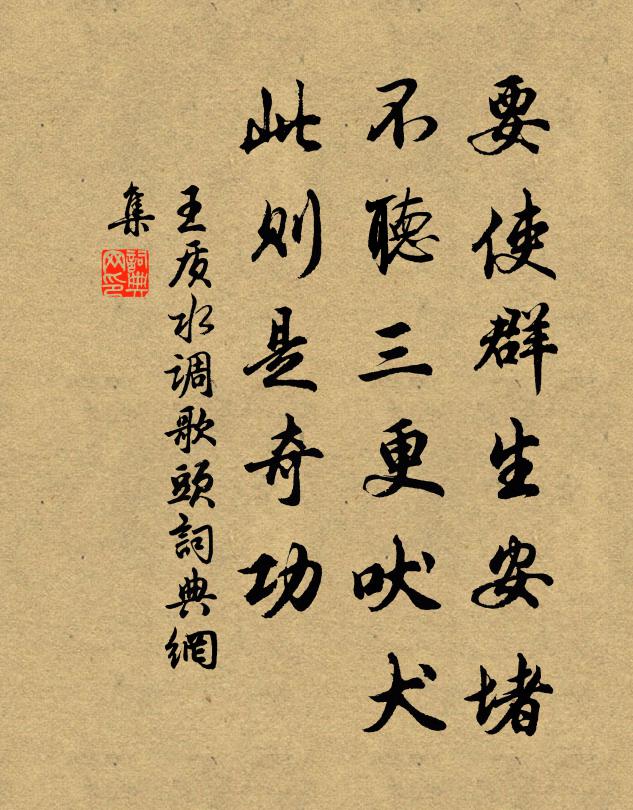 要使群生安堵
不聽三更吠犬
此则是奇功
王质水调歌頭詞典網
集
詞典
网印